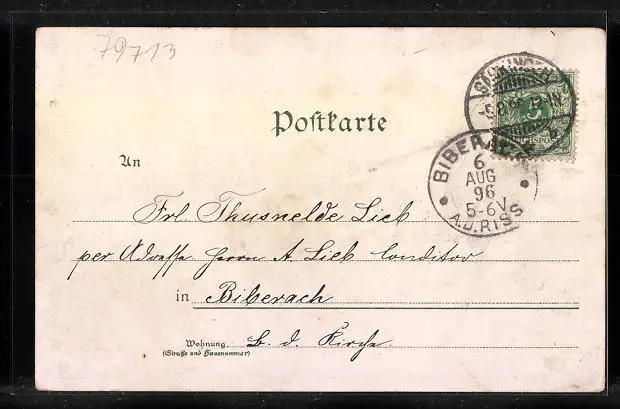 79713
Postkarte
5
BIBERACH
6
AUG
96
5-6V.
A.D.RISS
An
Frl. Thusnelde Lieb
per Adresse Herrn A. Lieb Conditor
in Biberach
Wohnung b. d. Kirche.
(Straße und Hausnummer)